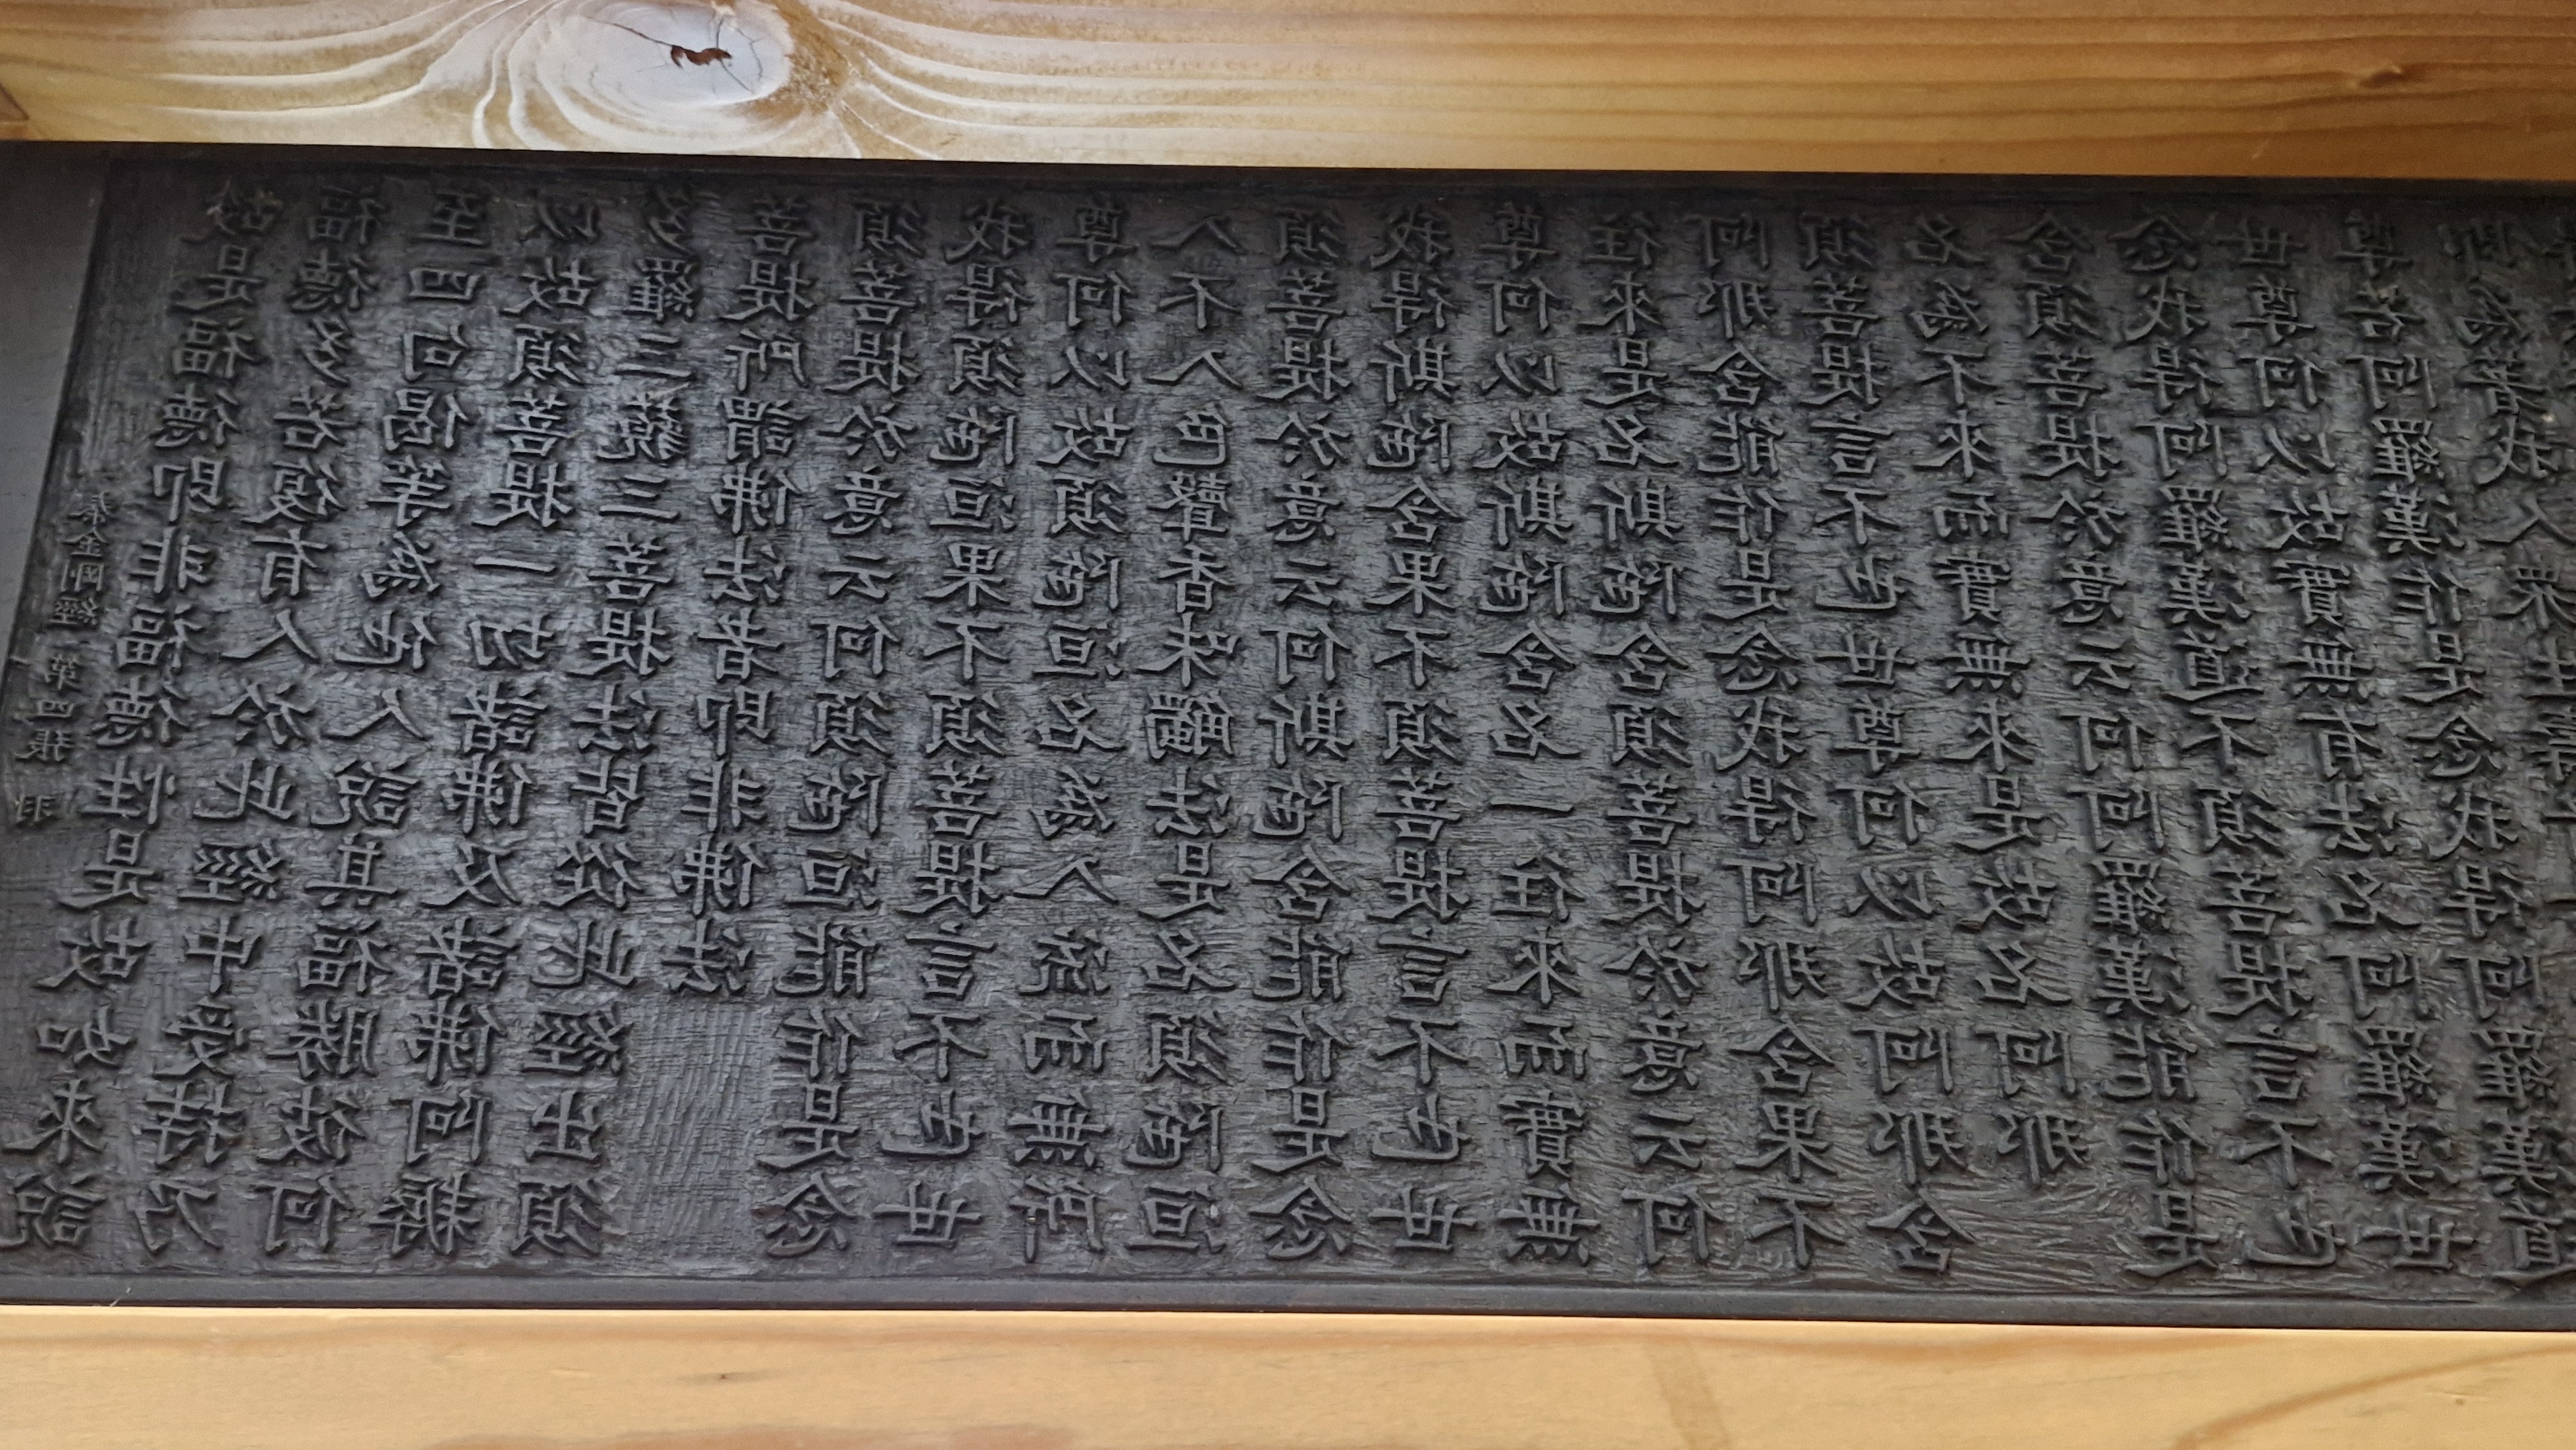 秦金剛經 第四張 羽
故是福德即非福德性是故如來說
福德多若復有人於此經中受持乃
至四句偈等為他人說其福勝彼何
以故須菩提一切諸佛及諸佛阿耨
多羅三藐三菩提法皆從此經出須
菩提所謂佛法者即非佛法
須菩提於意云何須陁洹能作是念
我得須陁洹果不須菩提言不也世
尊何以故須陁洹名為入流而無所
入不入色聲香味觸法是名須陁洹
須菩提於意云何斯陁含能作是念
我得斯陁含果不須菩提言不也世
尊何以故斯陁含名一往來而實無
往來是名斯陁含須菩提於意云何
阿那含能作是念我得阿那含果不
須菩提言不也世尊何以故阿那含
名為不來而實無來是故名阿那
含須菩提於意云何阿羅漢能作是
念我得阿羅漢道不須菩提言不也
世尊何以故實無有法名阿羅漢世
尊若阿羅漢作是念我得阿羅漢道
即為著我人眾生壽